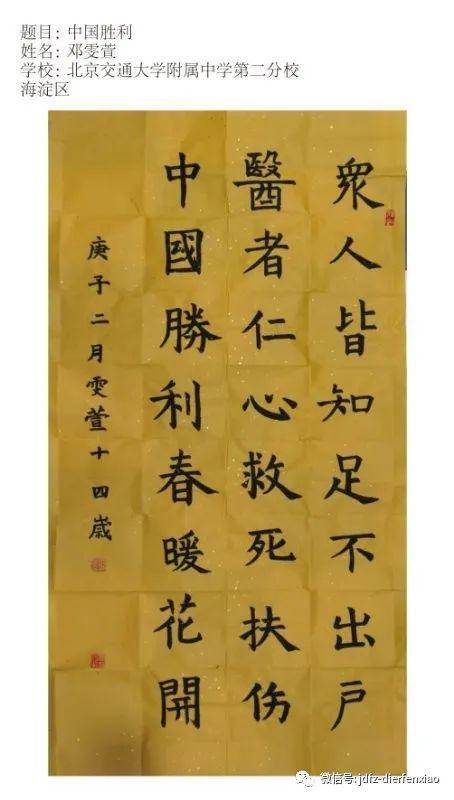 题目: 中国胜利
姓名: 邓雯萱
学校: 北京交通大学附属中学第二分校
海淀区
眾人皆知足不出戸
醫者仁心救死扶伤
中國勝利春暖花開
庚子二月雯萱十四歲
微信号: jdfz-dierfenxiao